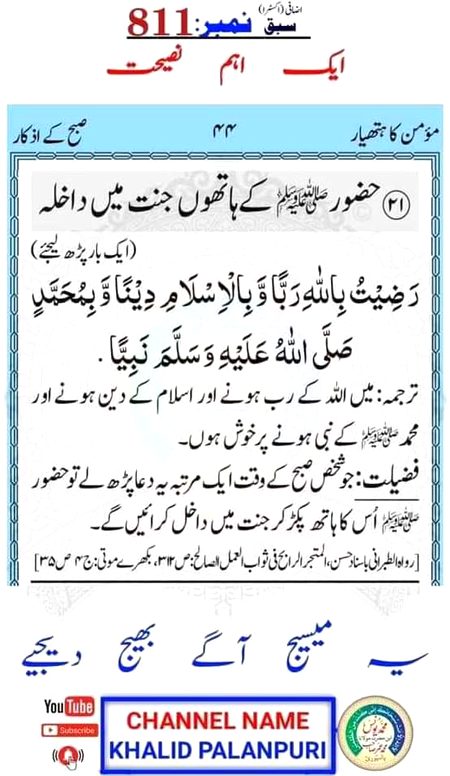 اضافی (اکسٹرا)
سبق نمبر:811
ایک اہم نصیحت
مؤمن کا ہتھیار ۴۴ صبح کے اذکار
۲۱ حضور ﷺ کے ہاتھوں جنت میں داخلہ
(ایک بار پڑھ لیجئے)
رَضِيْتُ بِاللهِ رَبًّا وَّ بِالْاِسْلَامِ دِيْنًا وَّ بِمُحَمَّدٍ
صَلَّى اللهُ عَلَيْهِ وَسَلَّمَ نَبِيًّا .
ترجمہ: میں اللہ کے رب ہونے اور اسلام کے دین ہونے اور
محمد ﷺ کے نبی ہونے پر خوش ہوں۔
فضیلت: جو شخص صبح کے وقت ایک مرتبہ یہ دعا پڑھ لے تو حضور
ﷺ اُس کا ہاتھ پکڑ کر جنت میں داخل کرائیں گے۔
[رواہ الطبرانی باسناد حسن، المتجر الرابح فی ثواب العمل الصالح: ص ۳۱۲، بکھرے موتی: ج ۴ ص ۳۵]
یہ میسیج آگے بھیج دیجیے
YouTube
Subscribe
CHANNEL NAME
KHALID PALANPURI